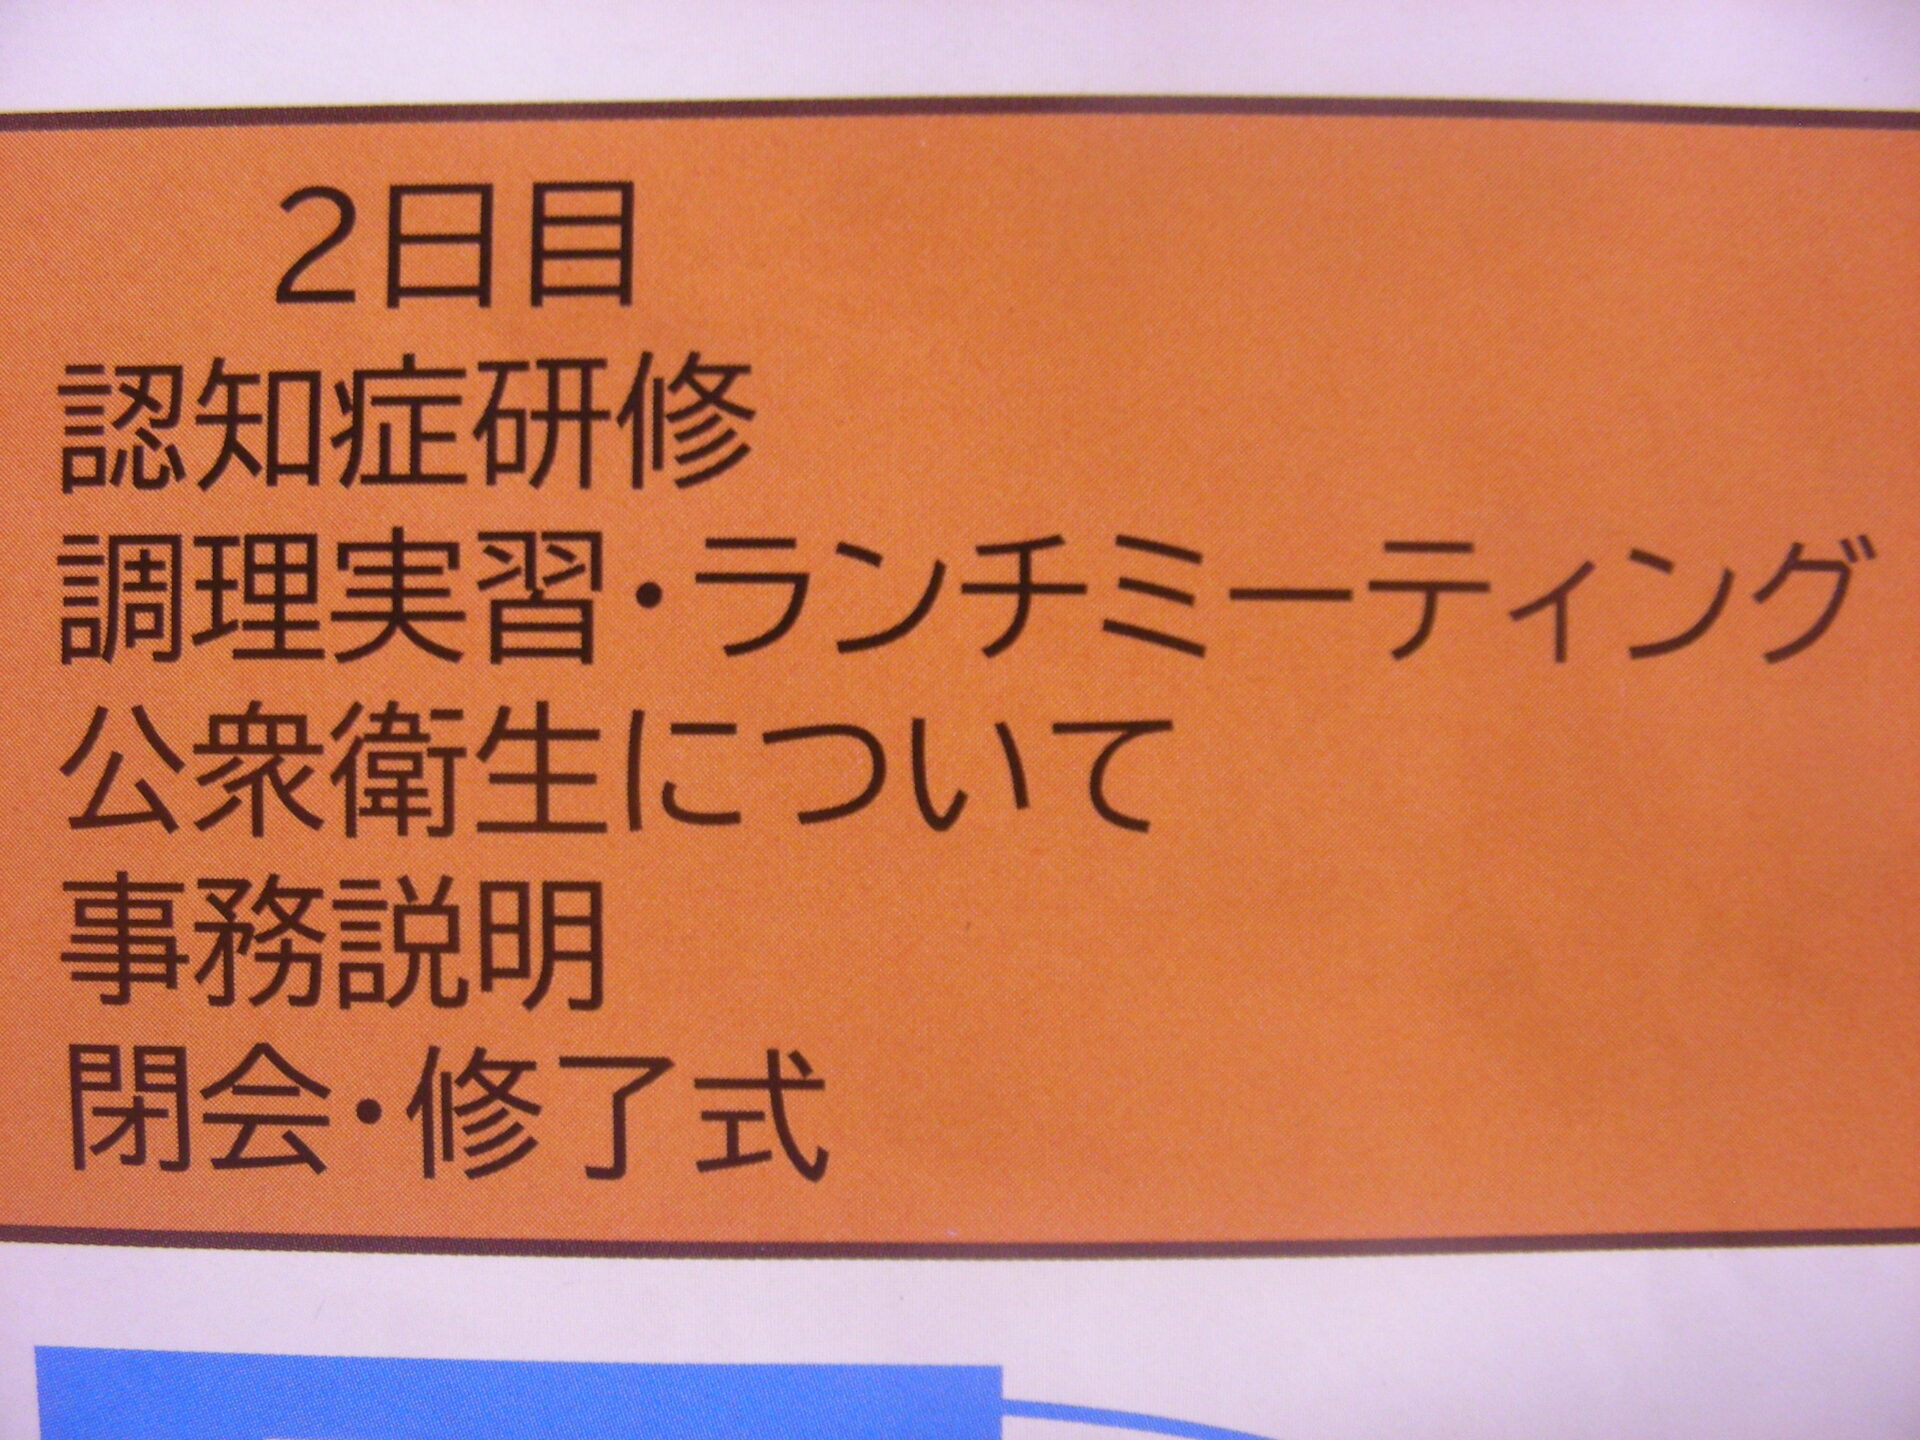 2日目
認知症研修
調理実習・ランチミーティング
公衆衛生について
事務説明
閉会・修了式